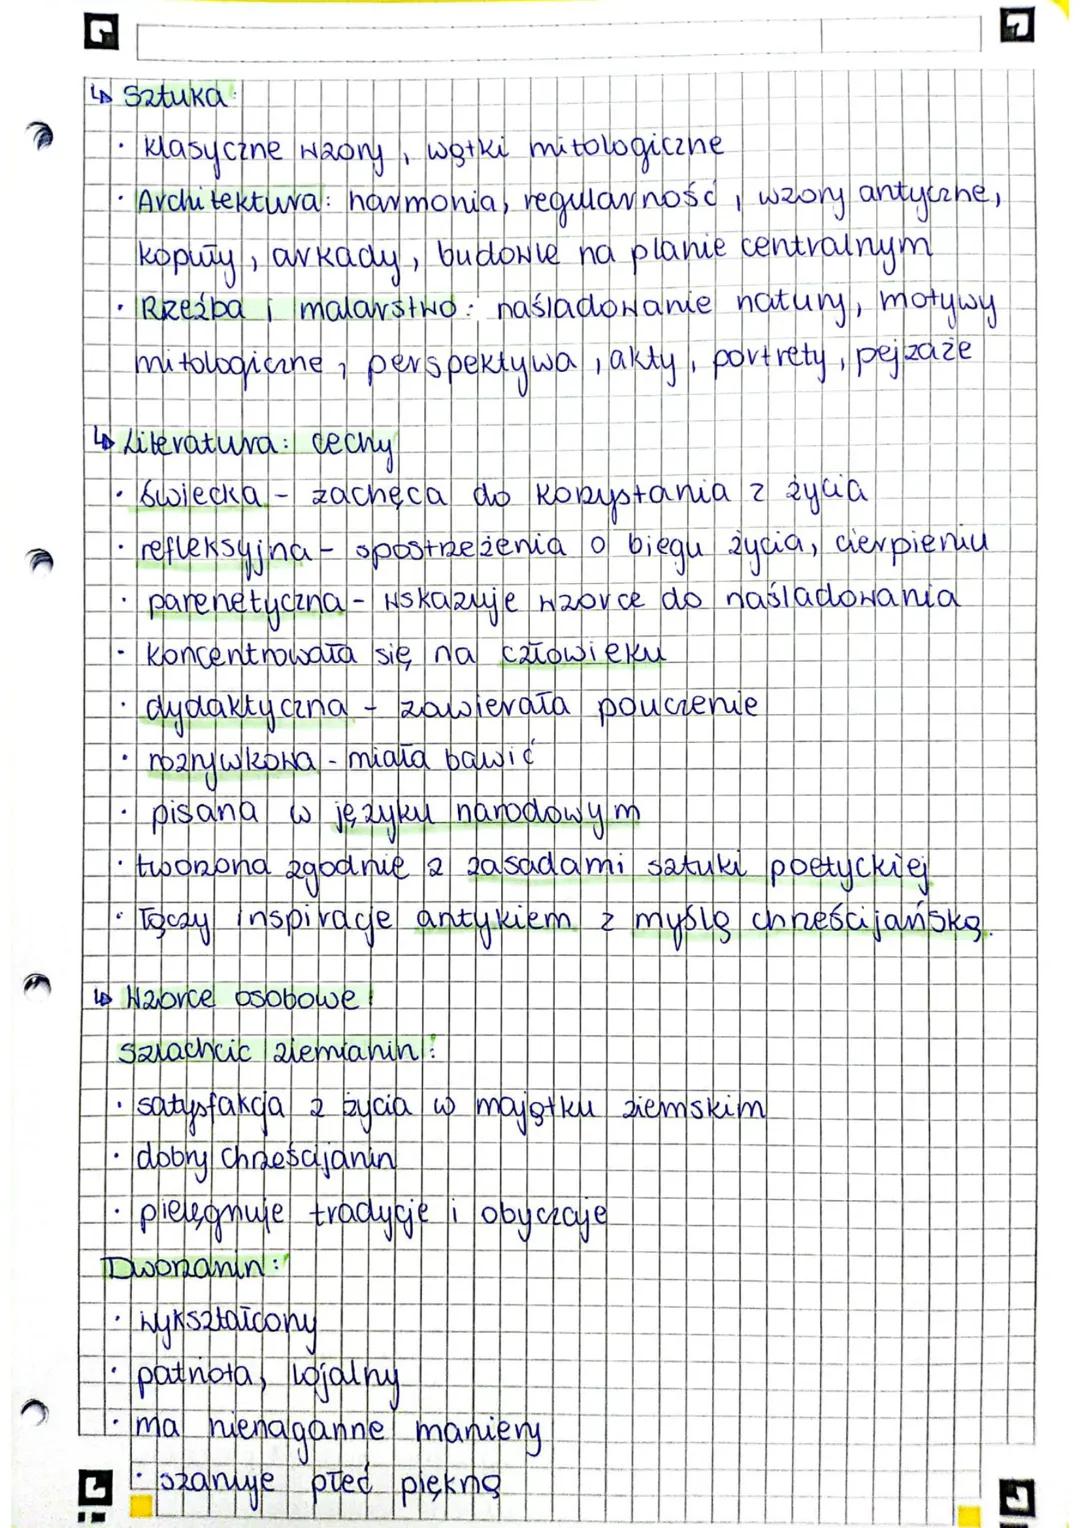 ↳ Sztuka:
· klasyczne wzory, wątki mitologiczne
· Architektura: harmonia, regularność, wzory antyczne,
kopuły, arkady, budowle na planie centralnym
· Rzeźba i malarstwo: naśladowanie natury, motywy
mitologiczne, perspektywa, akty, portrety, pejzaże
↳ Literatura: cechy
· świecka - zachęca do korzystania z życia
· refleksyjna - spostrzeżenia o biegu życia, cierpieniu
· parenetyczna - wskazuje wzorce do naśladowania
· koncentrowała się na człowieku
· dydaktyczna - zawierała pouczenie
· rozrywkowa - miała bawić
· pisana w języku narodowym
· tworzona zgodnie z zasadami sztuki poetyckiej
· łączy inspiracje antykiem z myślą chrześcijańską.
↳ Wzorce osobowe
Szlachcic ziemianin:
· satysfakcja z życia w majątku ziemskim
· dobry chrześcijanin
· pielęgnuje tradycje i obyczaje
Dworzanin:
· wykształcony
· patriota, lojalny
· ma nienaganne maniery
· szanuje płeć piękną